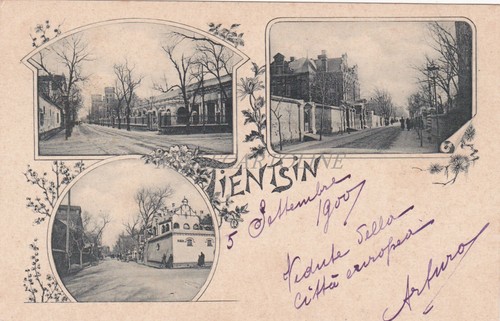 TIENTSIN
5 Settembre
1900
Vedute della
città europea.
Arturo